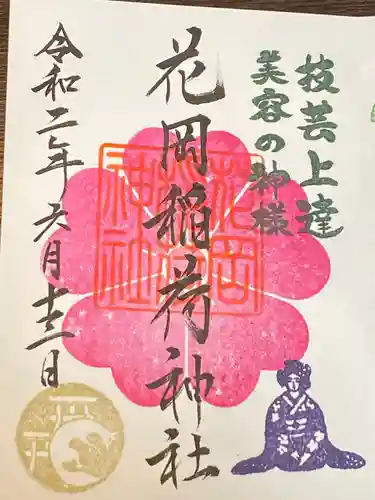 技芸上達
美容の神様
花岡稲荷神社
花岡稲荷神社
令和二年六月十三日